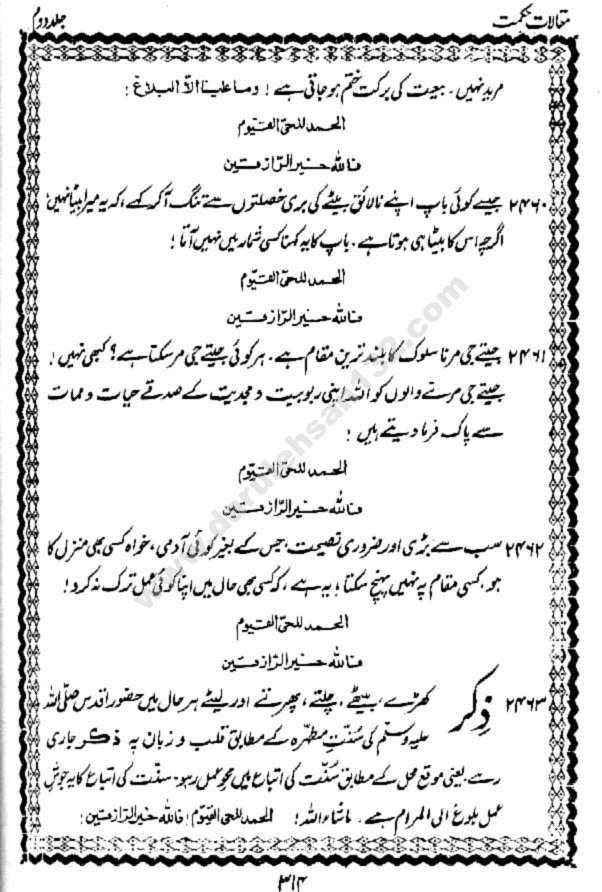 مقالات حکمت
جلد دوم
مرید نہیں۔ بیعت کی برکت ختم ہو جاتی ہے! وما علینا الا البلاغ!
الحمد للحی القیوم
فاللہ خیر الرازقین
۲۴۶۰ جیسے کوئی باپ اپنے نالائق بیٹے کی بری خصلتوں سے تنگ آ کر کہے، کہ یہ میرا بیٹا نہیں؛
اگرچہ اس کا بیٹا ہی ہوتا ہے۔ باپ کا یہ کہنا کسی شمار میں نہیں آتا!
الحمد للحی القیوم
فاللہ خیر الرازقین
۲۴۶۱ جیتے جی مرنا سلوک کا بلند ترین مقام ہے۔ ہر کوئی جیتے جی مر سکتا ہے؟ کبھی نہیں!
جیتے جی مرنے والوں کو اللہ اپنی ربوبیت و مجدیت کے صدقے حیات و ممات
سے پاک فرما دیتے ہیں!
الحمد للحی القیوم
فاللہ خیر الرازقین
۲۴۶۲ سب سے بڑی اور ضروری نصیحت، جس کے بغیر کوئی آدمی، خواہ کسی بھی منزل کا
ہو، کسی مقام پہ نہیں پہنچ سکتا؛ یہ ہے، کہ کسی بھی حال میں اپنا کوئی عمل ترک نہ کرو!
الحمد للحی القیوم
فاللہ خیر الرازقین
۲۴۶۳ ذکر کھڑے، بیٹھے، چلتے، پھرتے اور لیٹے ہر حال میں حضور اقدس صلی اللہ
علیہ وسلم کی سنت مطہرہ کے مطابق قلب و زبان پہ ذکر جاری
رہے۔ یعنی موقع محل کے مطابق سنت کی اتباع میں محو عمل رہو۔ سنت کی اتباع کا یہ جوش
عمل بلوغ الی المرام ہے۔ ماشاء اللہ! الحمد للحی القیوم! فاللہ خیر الرازقین!
۳۱۴
www.darulehsan139.com